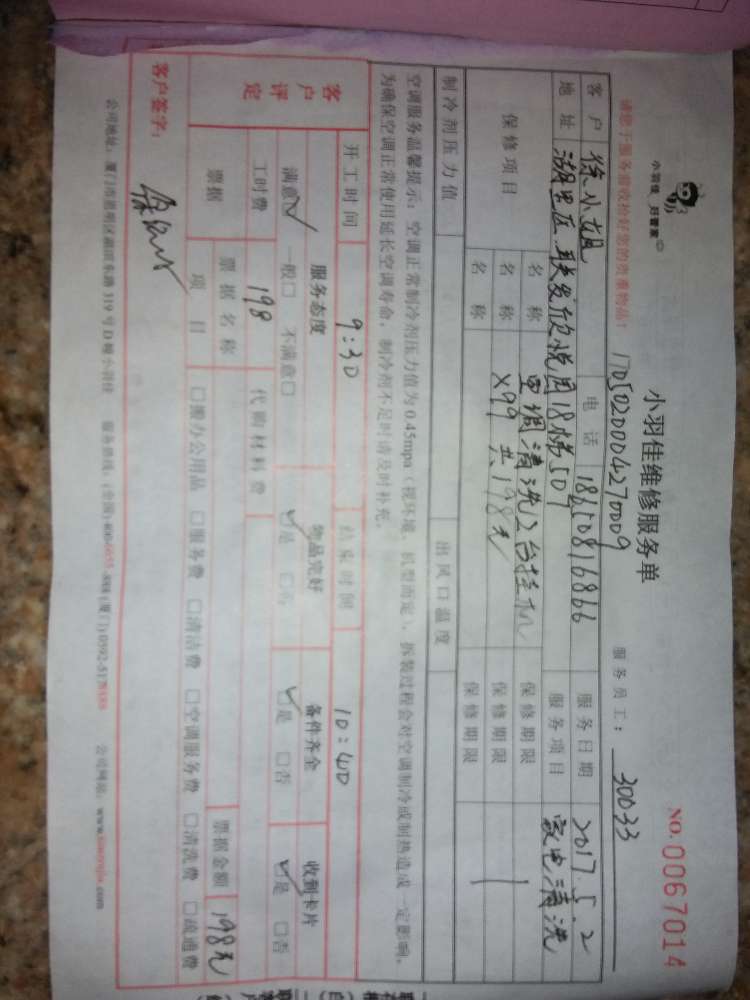 小羽佳 好管家
小羽佳维修服务单
NO.0067014
请您于服务前收拾好您的贵重物品!
1705020004270009
服务员工: 30033
客户 徐小姐 电话 18650816866 服务日期 2017.5.2
地址 湖里区联发欣悦园18梯501 服务项目 家电清洗
保修项目 名称 空调清洗2台挂机 保修期限
名称 X99 共198元 保修期限
名称 保修期限
制冷剂压力值 出风口温度
空调服务温馨提示:空调正常制冷剂压力值为0.45mpa(视环境、机型而定),拆装过程会对空调制冷或制热造成一定影响。
为确保空调正常使用延长空调寿命,制冷剂不足时请及时补充。
开工时间 9:30 结束时间 10:40
客户评定 服务态度 物品完好 备件齐全 收到卡片
满意☑ 一般□ 不满意□ ☑是 □否 ☑是 □否 ☑是 □否
工时费 198 代购材料费
票据 票据名称 票据金额 198元
项目 □搬办公用品 □服务费 □清洁费 □空调服务费 □清洗费 □疏通费
客户签字: